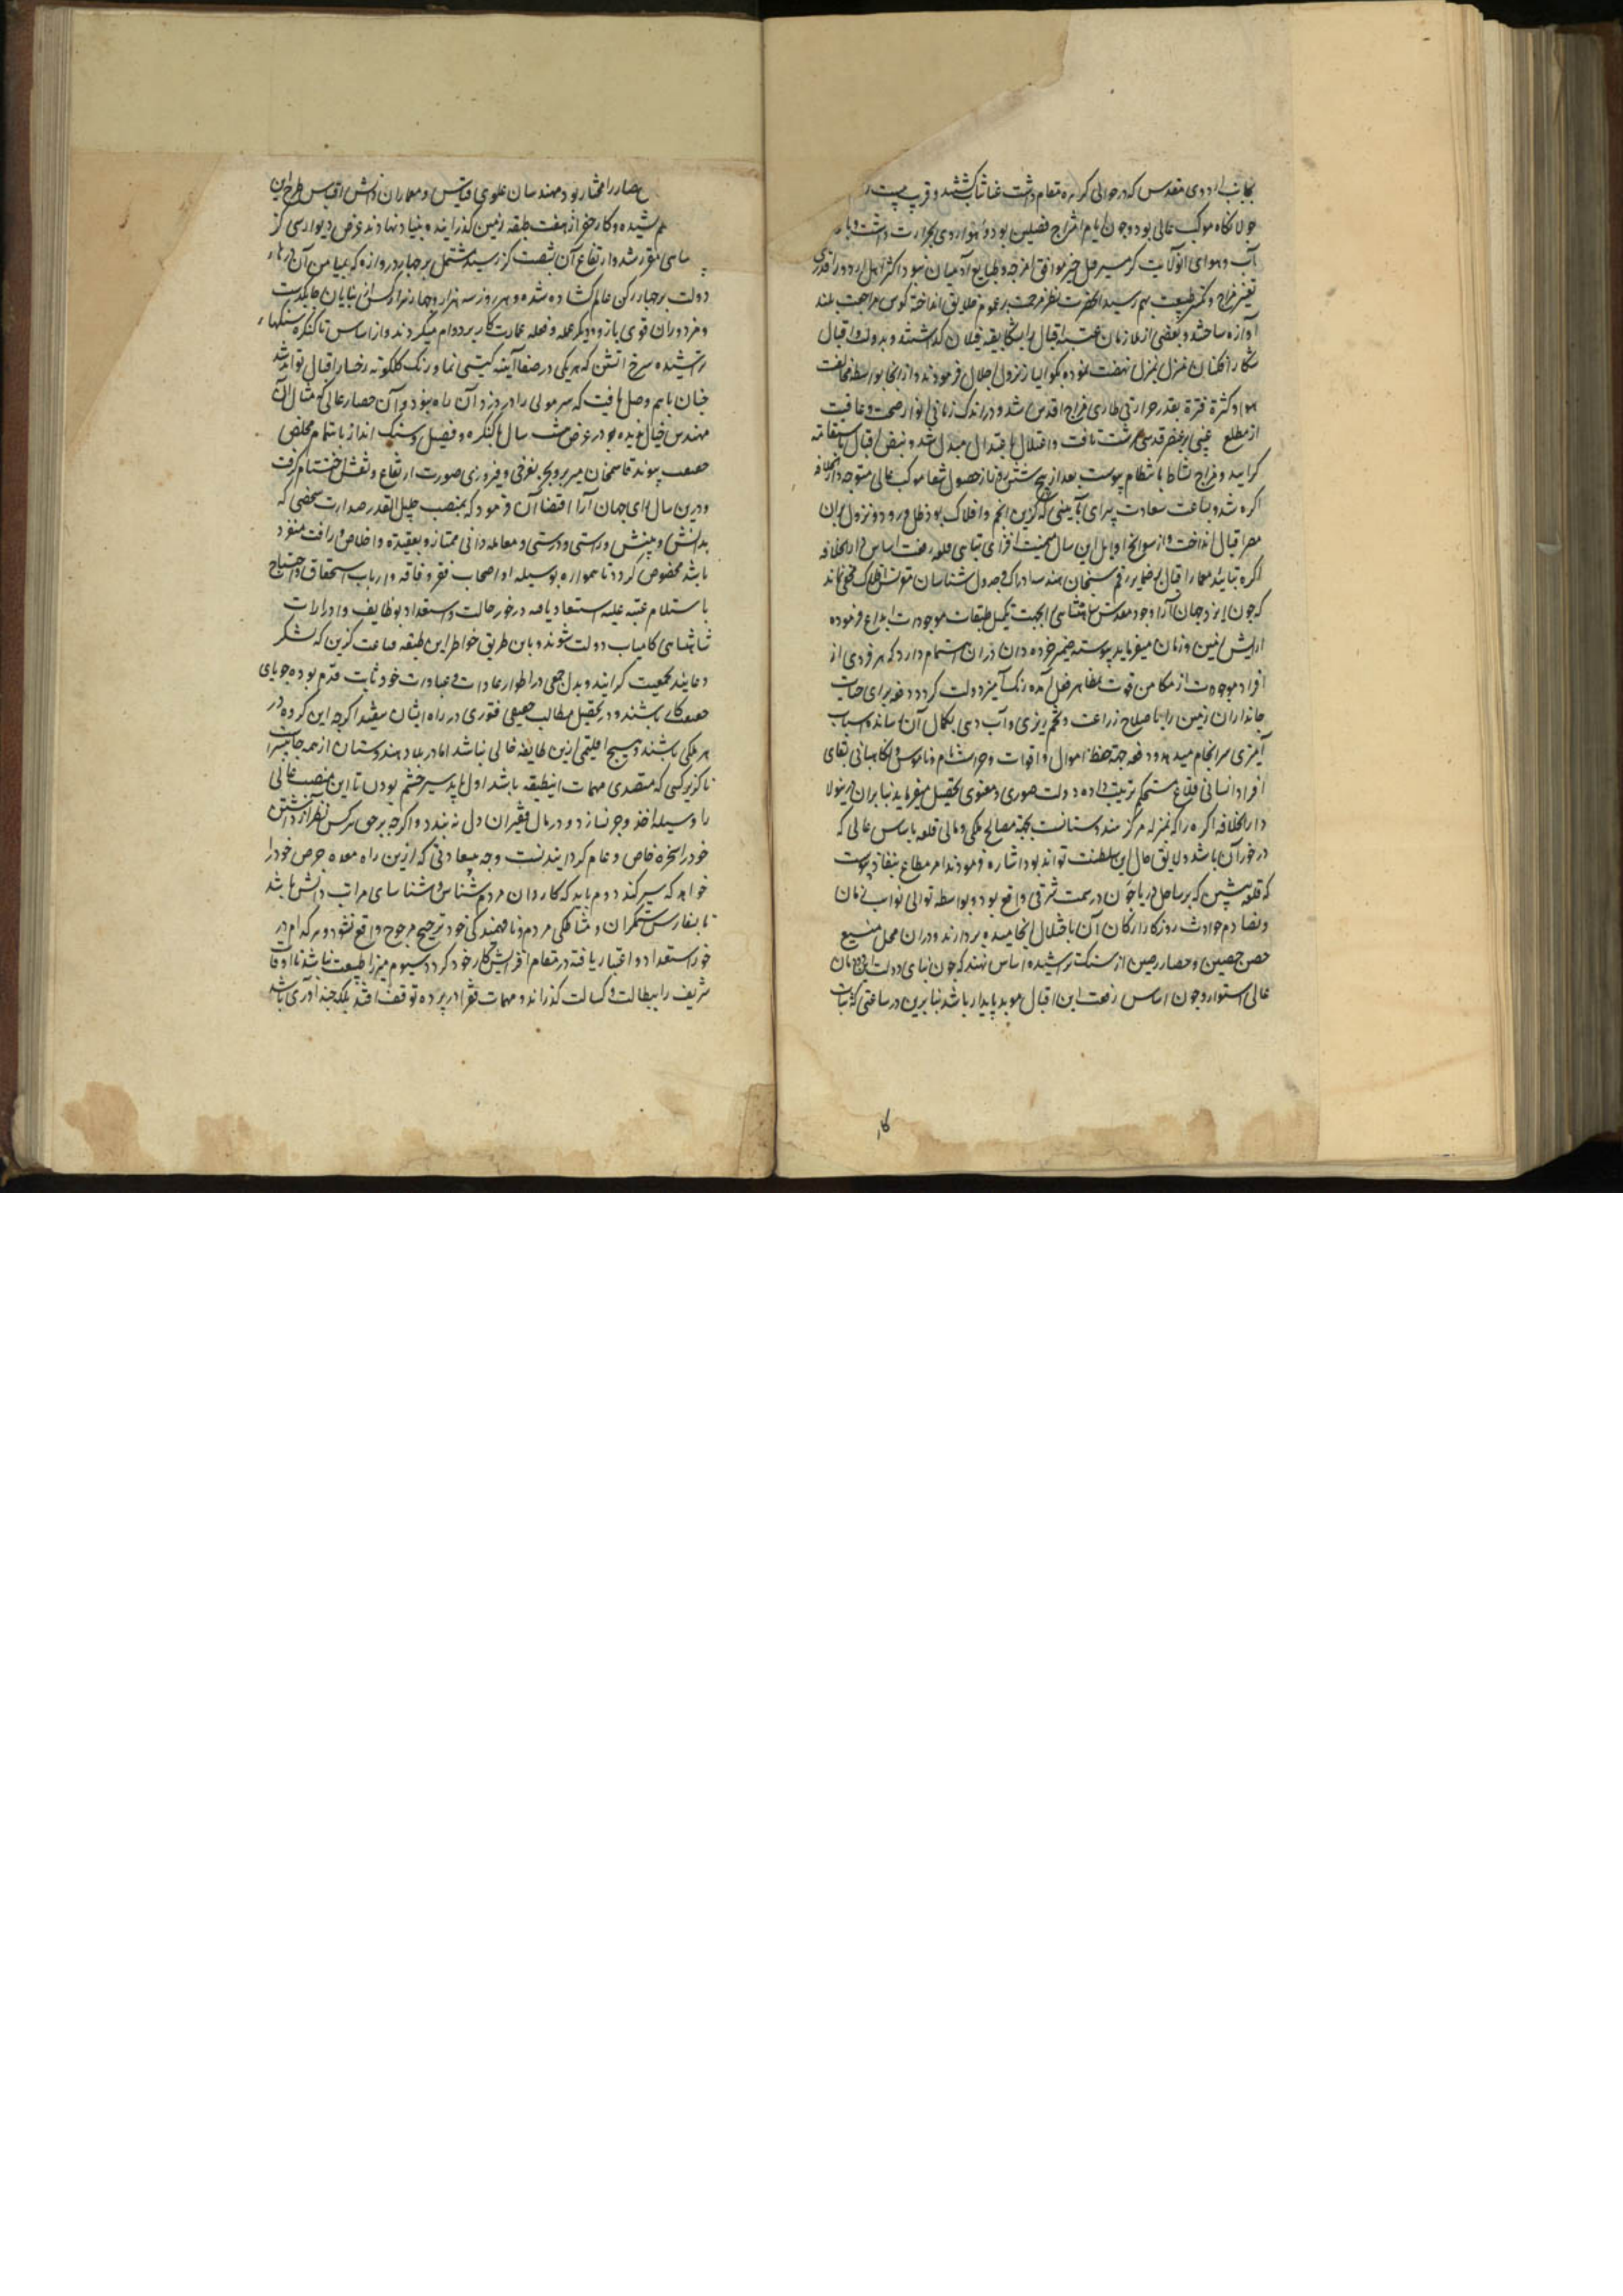 بجانب اردوی مقدس که در حوالی کرهره مقام داشت شتافتند و قریب بیست
جولانگاه موکب عالی بود و چون ایام امتزاج فصلین بود و هوا روی بحرارت داشت و با
آب و هوای آنولایت گرمسیر موافق امزجه و طبایع آدمیان نبود اکثر اهل اردو را قدری
تغییر مزاج و تکسر طبیعت بهم رسید آنحضرت نظر مرحمت بر عموم خلایق انداخته کوس مراجعت بلند
آوازه ساختند و بعضی از ملازمان عتبه اقبال را بتکابقیه فیلان گذاشتند و بدولت و اقبال
شکار افکنان منزل بمنزل نهضت نموده بگوالیار نزول اجلال فرمودند و از آنجا بواسطه مخالفت
هوا و کثرة فترة بقدر حرارتی طاری مزاج اقدس شد و در اندک زمانی انوار صحت و عافیت
از مطلع غیبی بر عنصر قدسی سرشت تافت و اعتلال باعتدال مبدل شد و نبض اقبال باستقامت
گرایید و مزاج نشاط بانتظام پیوست بعد از حصول شفا موکب عالی متوجه دار الخلافه
اگره شد و بساعت سعادت پیرای بآیینی که گزین انجم و افلاک بود ظل ورود و نزول بران
مصر اقبال انداخت و از سوانح اوایل این سال میمنت افزای بنای قلعه رفعت اساس دار الخلافه
اگره بتایید معمار اقبال بر ضمایر رقم سنجان هندسه ادراک و جدول شناسان نقوش افلاک مخفی نماند
که چون ایزد جهان آرا وجود مقدس شاهنشاهی را بجهت تکمیل طبقات موجودات ابداع فرموده
آرایش زمین و زمان میفرماید پیوسته ضمیر خرده دان در آن اهتمام دارد که هر فردی از
افراد موجودات از مکامن قوت بمظاهر فعل آمده رنگ آمیز دولت گردد دفعه برای حیات
جانداران زمین را باصلاح زراعت و تخم ریزی و آب دهی بکمال آن رسانده اسباب
آمیزی سرانجام میدهد و دفعه جهة حفظ اموال و اقوات و حراست نام و ناموس و نگاهبانی بقای
افراد انسانی قلاع مستحکم ترتیب داده دولت صوری و معنوی تحصیل میفرماید بنابران درینولا
دار الخلافه اگره را که بمنزله مرکز هندوستانست بجهة مصالح ملکی و مالی قلعه باساس عالی که
در خور آن باشد و لایق حال این سلطنت تواند بود اشاره فرمودند امر مطاع بنفاذ پیوست
که قلعه پیشین که بر ساحل دریا جون در سمت شرقی واقع بود و بواسطه توالی نوایب زمان
و تصادم حوادث روزگار ارکان آن باختلال انجامیده بردارند و در آن محل منیع
حصن حصین و حصار رصین از سنگ تراشیده اساس نهند که چون بنای دولت این دودمان
عالی استوار و چون اساس رفعت این اقبال موبد پایدار باشد بنابرین در ساعتی که ثبات
کار
حصار را مختار بود مهندسان علوی قیاس و معماران دانش اقتباس طرح این
کشیده و کار حفر از هفت طبقه زمین گذرانیده بنیاد نهادند عرض دیوار سی گز
شاهی مقرر شد و ارتفاع آن بشصت گز رسید مشتمل بر چهار دروازه که بمیامن آن درهای
دولت بر چهار رکن عالم گشاده شده و هر روز سه هزار و چهار هزار کس از بنایان چابکدست
و مزدوران قوی بازو و دیگر عمله و فعله عمارت کار بردوام میکردند و از اساس تا کنگره سنگهاء
تراشیده سرخ آتشی که هر یکی در صفا آینه گیتی نما و رنگ گلگونه رخسار اقبال تواند شد
چنان باهم وصل یافت که سر مویی را در درز آن راه نبود و آن حصار عالی که مثال آن
مهندس خیال ندیده بود در عرض هشت سال با کنگره و فصیل و سنگ انداز باهتمام مخلص
پیوند قاسمخان میر بر و بحر بفرخی و فیروزی صورت ارتفاع و نقش اختتام گرفت
و درین سال رای جهان آرا اقتضا آن فرمود که بمنصب جلیل القدر صدارت شخصی که
بدانش و بینش و راستی و درستی و معامله دانی ممتاز و بعقیدة و اخلاص و رافت منفرد
باشد مخصوص گردد تا همواره بوسیله او اصحاب فقر و فاقه و ارباب استحقاق و احتیاج
باستلام عتبه علیه استسعاد یافته در خور حالت و استعداد بوظایف و ادرارات
شاهنشاهی کامیاب دولت شوند و باین طریق خواطر این طبقه قناعت گزین که لشکر
دعایند بجمعیت گرایند و بدل جمعی در اطوار عادات و عبادات خود ثابت قدم بوده جویای
باشند و در تحصیل مطالب حقیقی فتوری در راه ایشان نیفتد اگرچه این گروه در
هر ملکی باشند و هیچ اقلیمی ازین طایفه خالی نباشد اما در بلاد هندوستان از همه جا بیشتر
ناگزیر کسی که متصدی مهمات اینطبقه باشد اول باید سیر چشم بودن تا این منصب عالی
را وسیله اخذ و جر نسازد و در مال فقیران دل نه بندد و اگرچه بر حق هر کس نظر انداختن
خود را سخره خاص و عام گردانیدنست و چه سعادتی که ازین راه معده حرص خود را
خواهد که سیر کند دوم باید که کاردان مردم شناس و شناسای مراتب دانش باشد
تا بسفارش ستمگران و مشاکلی مردم و نافهمیدگی خود ترجیح مرجوح واقع نشود و هر کدام در
خور استعداد و اعتبار یافته در مقام افزایش کار خود گردد سیوم میرزا طبیعت نباشد تا اوقات
شریف را ببطالت و کسالت گذراند و مهمات فقرا در پرده توقف افتد بلکه چند آوری باشد